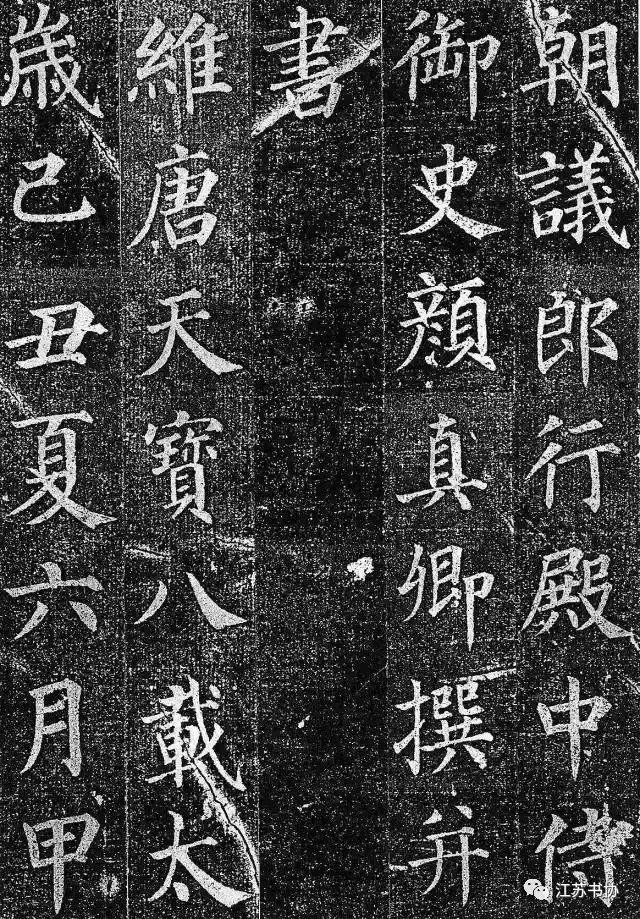 朝議郎行殿中侍
御史顏真卿撰并
書
維唐天寶八載太
歲己丑夏六月甲
江苏书协